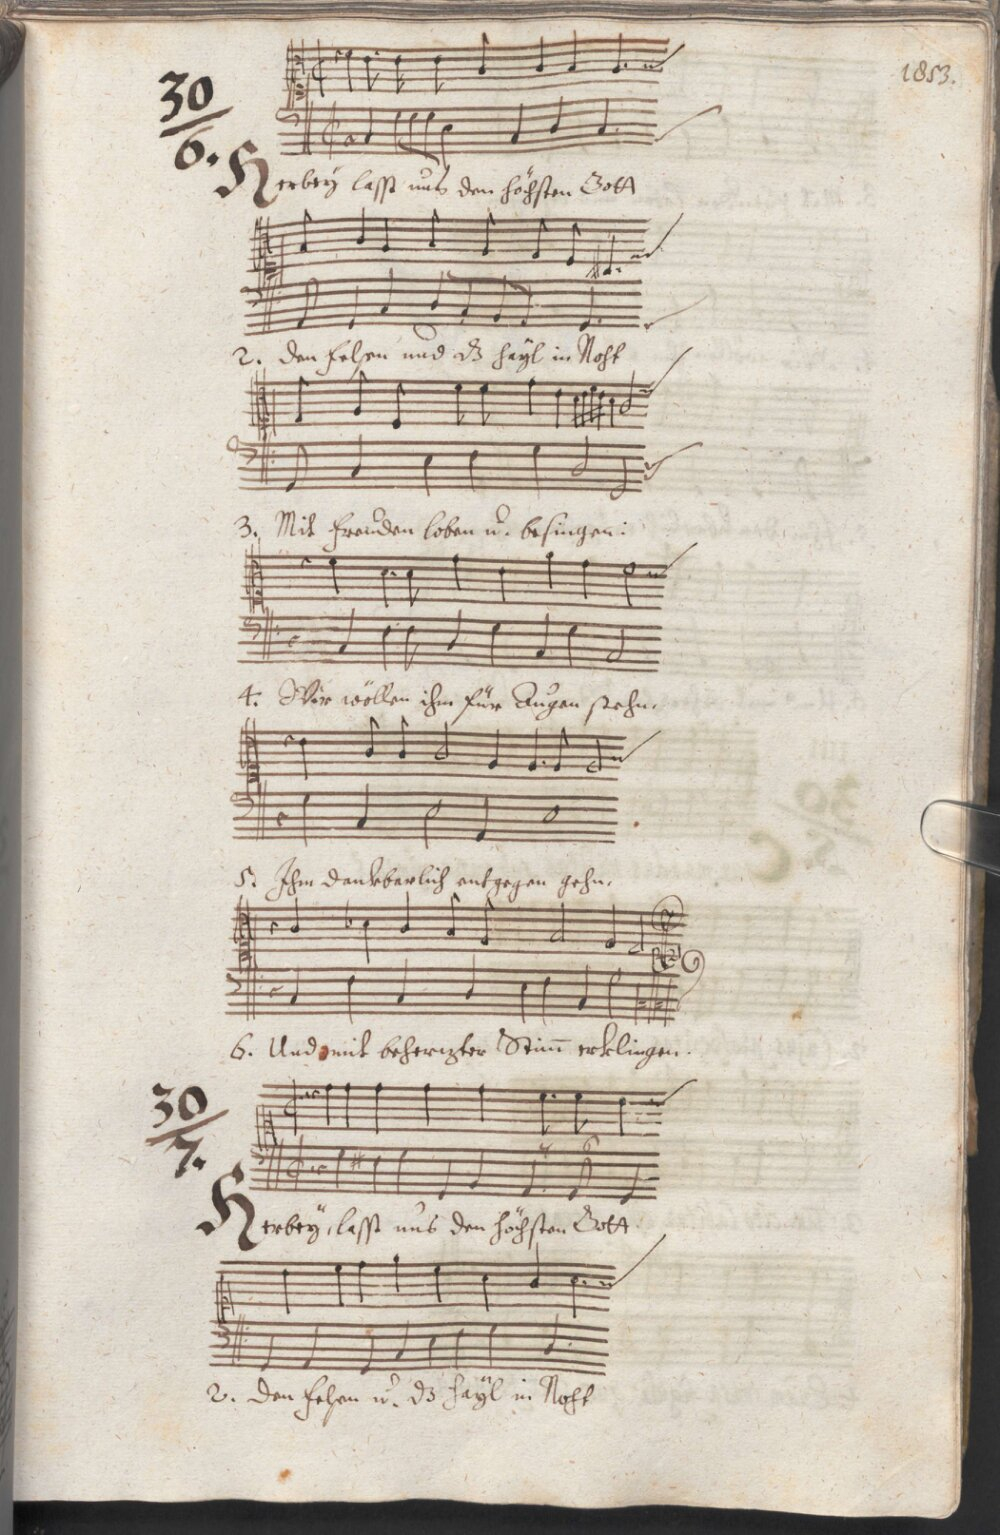 1853.
30/6.
Herbey lasst uns den höchsten Gott
2. den felsen und dz hayl in Noht
3. Mit freuden loben u. besingen:
4. Wir wöllen ihm für Augen stehn,
5. Ihm dankbarlich entgegen gehn,
6. Und mit beherzter Stim̄ erklingen.
30/7.
Herbey, lasst uns den höchsten Gott
2. den felsen u. dz hayl in Noht